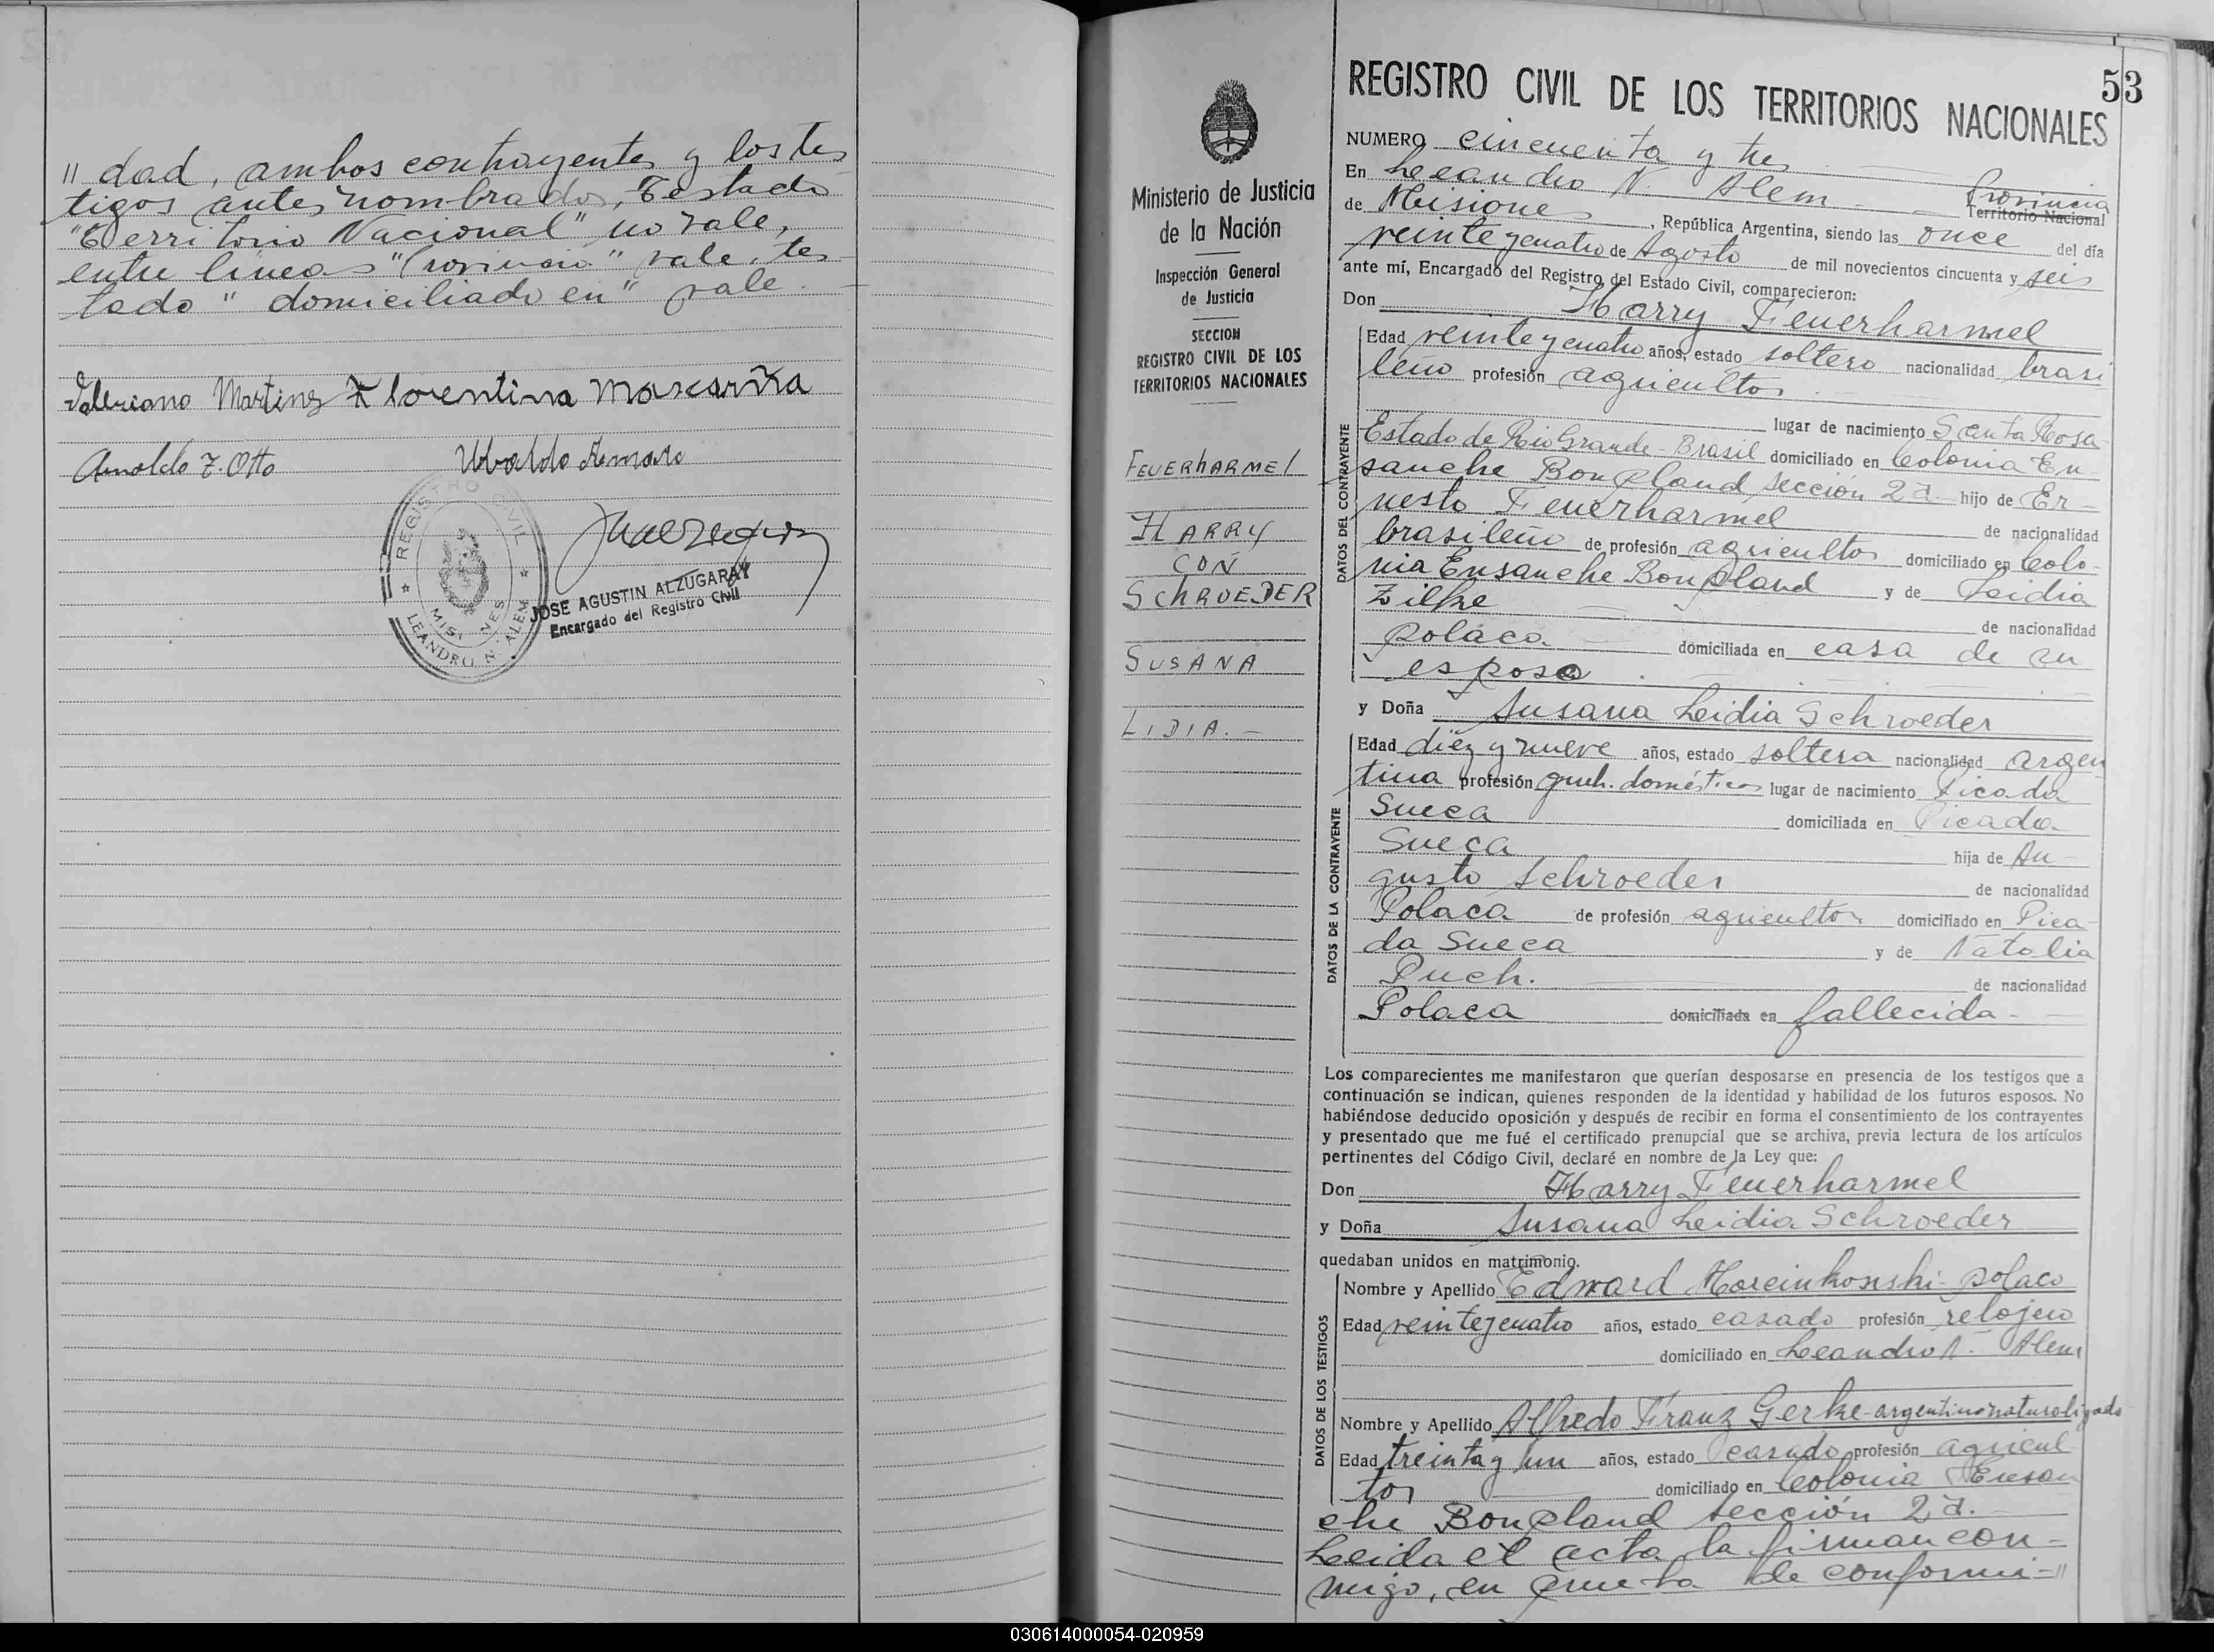 " dad, ambos contrayentes y los tes
tigos antes nombrados, Testado
"Territorio Nacional" no vale,
entre lineas "Provincia" vale, tes
tado " domiciliado en" vale.
Valeriano Martinez Florentina Mascariña
Arnoldo F. Otto Ubaldo
REGISTRO CIVIL
MISIONES
LEANDRO N. ALEM
JOSE AGUSTIN ALZUGARAY
Encargado del Registro Civil
Ministerio de Justicia
de la Nación
Inspección General
de Justicia
SECCION
REGISTRO CIVIL DE LOS
TERRITORIOS NACIONALES
FEUERHARMEL
HARRY
CON
SCHROEDER
SUSANA
LIDIA.-
53
REGISTRO CIVIL DE LOS TERRITORIOS NACIONALES
NUMERO cincuenta y tres
En Leandro N. Alem - Provincia
Territorio Nacional
de Misiones, República Argentina, siendo las once del día
veinte y cuatro de Agosto de mil novecientos cincuenta y seis
ante mí, Encargado del Registro del Estado Civil, comparecieron:
Don Harry Feuerharmel
DATOS DEL CONTRAYENTE
Edad veinte y cuatro años, estado soltero nacionalidad brasi
leño profesión agricultor
lugar de nacimiento Santa Rosa
Estado de Rio Grande - Brasil domiciliado en Colonia En-
sanche Bonpland sección 2a hijo de Er-
nesto Feuerharmel de nacionalidad
brasileño de profesión agricultor domiciliado en Colo-
nia Ensanche Bonpland y de Leidia
Zilke de nacionalidad
polaca domiciliada en casa de su
esposo
y Doña Susana Leidia Schroeder
DATOS DE LA CONTRAYENTE
Edad diez y nueve años, estado soltera nacionalidad argen
tina profesión queh. domésticos lugar de nacimiento Picada
Sueca domiciliada en Picada
Sueca hija de Au-
gusto Schroeder de nacionalidad
Polaca de profesión agricultor domiciliado en Pica-
da Sueca y de Natalia
Puch. de nacionalidad
Polaca domiciliada en fallecida-
Los comparecientes me manifestaron que querían desposarse en presencia de los testigos que a
continuación se indican, quienes responden de la identidad y habilidad de los futuros esposos. No
habiéndose deducido oposición y después de recibir en forma el consentimiento de los contrayentes
y presentado que me fué el certificado prenupcial que se archiva, previa lectura de los artículos
pertinentes del Código Civil, declaré en nombre de la Ley que:
Don Harry Feuerharmel
y Doña Susana Leidia Schroeder
quedaban unidos en matrimonio.
DATOS DE LOS TESTIGOS
Nombre y Apellido Edward Marcinkowski - polaco
Edad veinte y cuatro años, estado casado profesión relojero
domiciliado en Leandro N. Alem
Nombre y Apellido Alfredo Franz Gerke - argentino naturalizado
Edad treinta y un años, estado casado profesión agricul
tor domiciliado en Colonia Ensan
che Bonpland sección 2a.
Leida el acta la firman con-
migo, en prueba de conformi-"
030614000054-020959